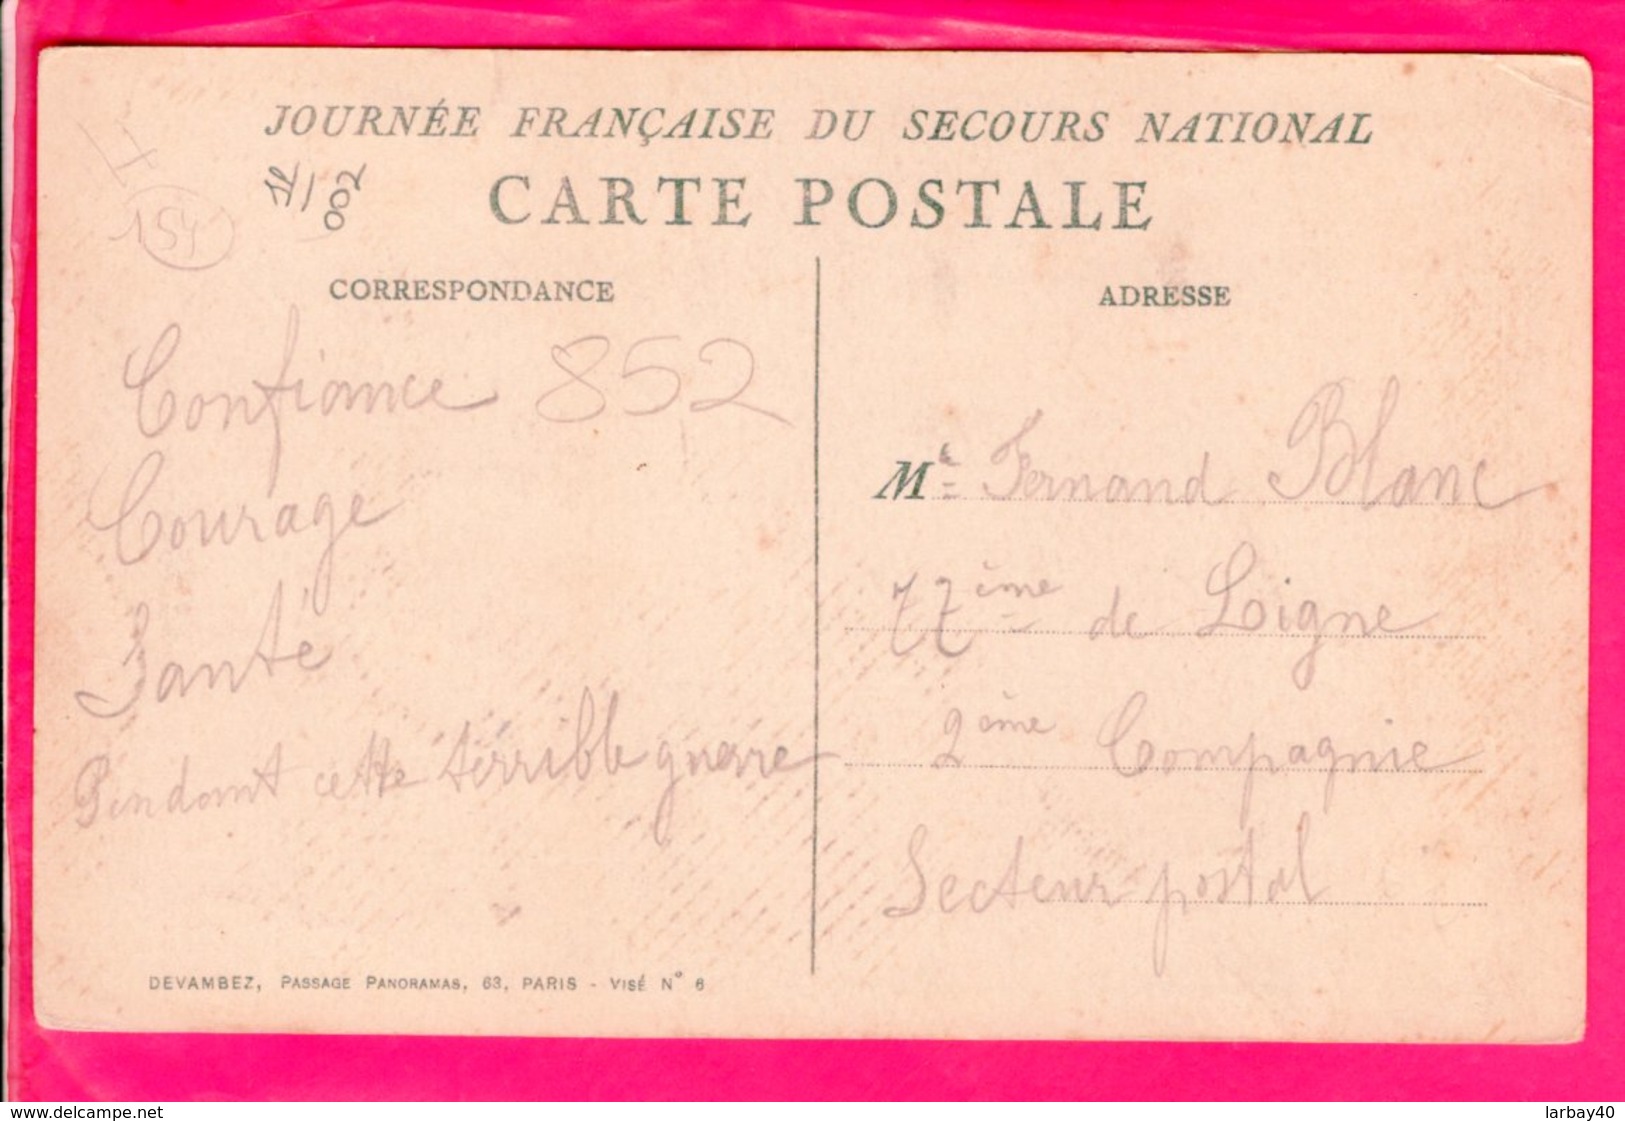 JOURNÉE FRANÇAISE DU SECOURS NATIONAL
CARTE POSTALE
154
002
CORRESPONDANCE
ADRESSE
Confiance 852
Courage
Santé
Pendant cette terrible guerre
M. Fernand Blanc
77ème de Ligne
2ème Compagnie
Secteur postal
DEVAMBEZ, PASSAGE PANORAMAS, 63, PARIS - VISÉ N° 6
www.delcampe.net
larbay40